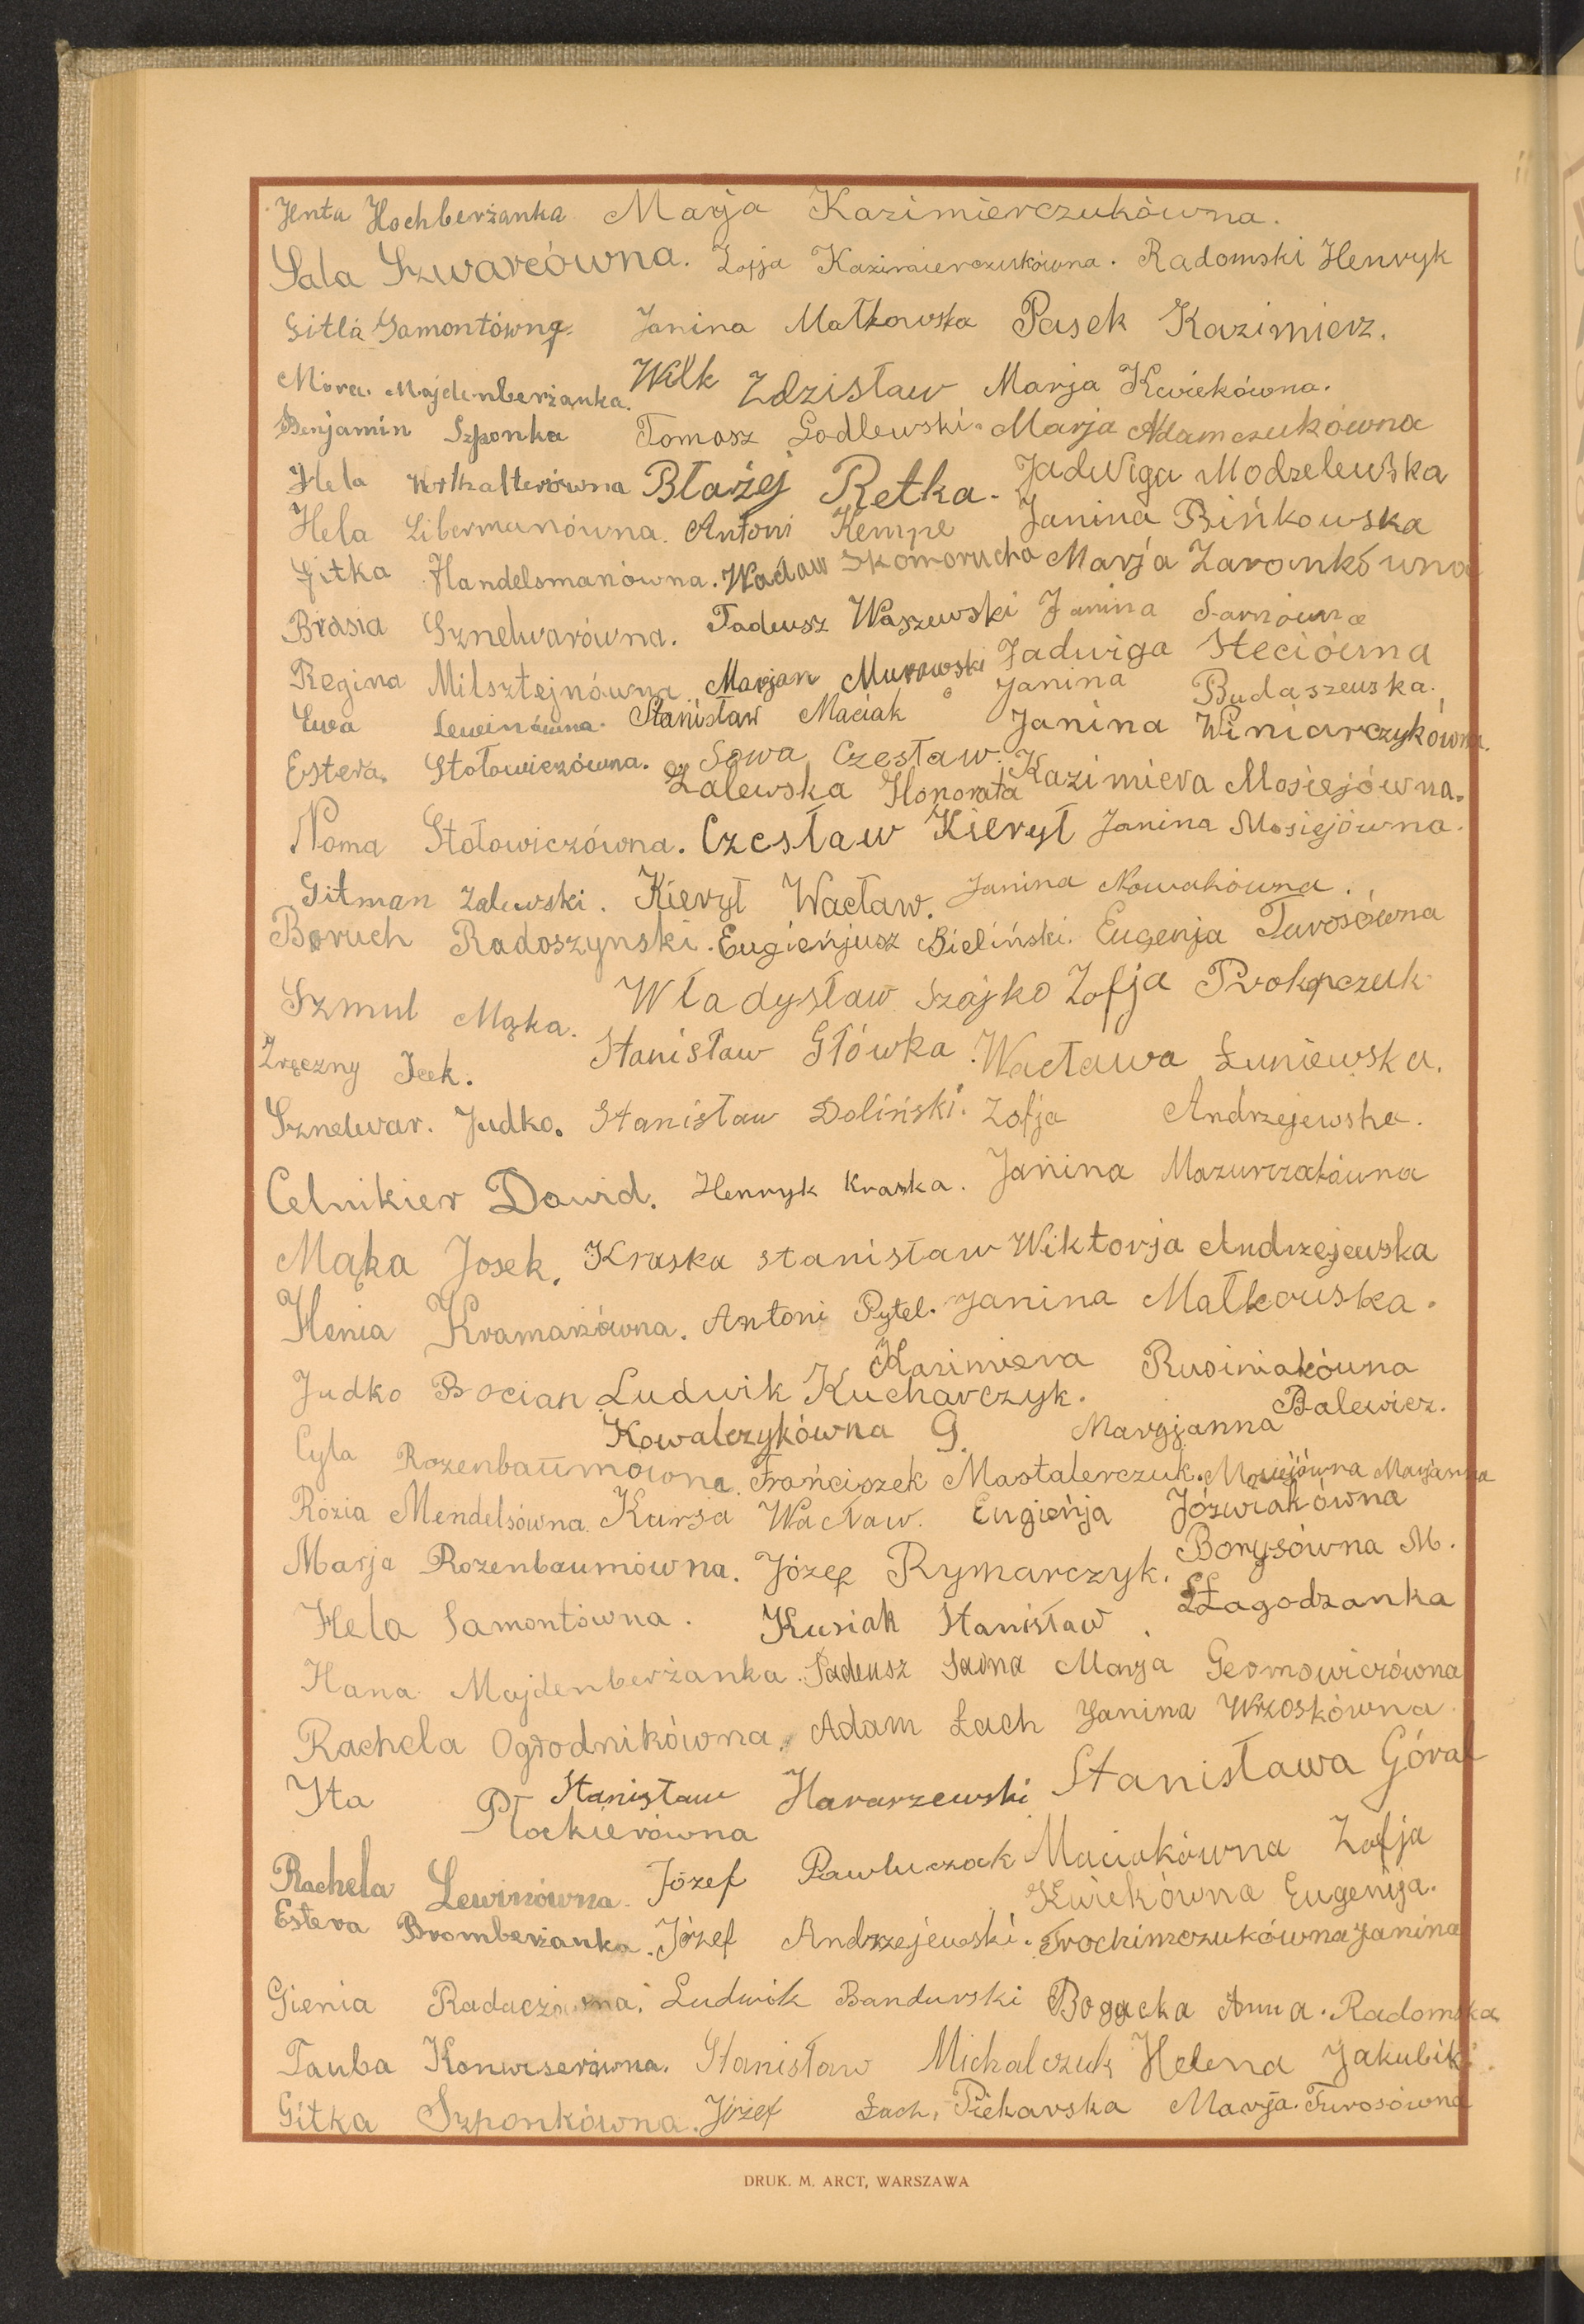 Jenta Hochberżanka Marja Kazimierczukówna.
Sala Szwarcówna. Zofja Kazimierczukówna. Radomski Henryk
Gitla Samontówna. Janina Małkowska Pasek Kazimierz.
Mira Majdenberżanka. Wilk Zdzisław Marja Kwiekówna.
Benjamin Szponka Tomasz Godlewski. Marja Adamczukówna
Hela Błażej Retka. Jadwiga Modzelewska
Hela Libermanówna. Antoni Kempe Janina Bińkowska
Gitka Handelsmanówna. Wacław Skomorucha Marja Zaronkówna
Brasia Sznelwarówna. Tadeusz Waszewski Janina Sarnówna
Regina Milsztejnówna. Marjan Murawski Jadwiga Steciówna
Ewa Lewinówna. Stanisław Maciak Janina Budaszewska.
Estera Stołowiczówna. Sowa Czesław. Janina Winiarczykówna.
Zalewska Honorata Kazimiera Mosiejówna.
Noma Stołowiczówna. Czesław Kierył Janina Mosiejówna.
Gitman Zalewski. Kierył Wacław. Janina Nowakówna.
Boruch Radoszynski. Eugieńjusz Bieliński. Eugenja Turosówna
Szmul Mąka. Władysław Szajko Zofja Prokopczuk
Zręczny Icek. Stanisław Główka. Wacława Łuniewska.
Sznelwar. Judko. Stanisław Doliński. Zofja Andrzejewska.
Celnikier Dawid. Henryk Kraska. Janina Mazurczakówna
Mąka Josek. Kraska Stanisław Wiktorja Andrzejewska
Henia Kramarżówna. Antoni Pytel. Janina Małkowska.
Judko Bocian Ludwik Kucharczyk. Kazimiera Rusiniakówna
Kowalczykówna G. Maryjanna Balewicz.
Cyla Rozenbaumówna. Frańciszek Mastalerczuk. Mosiejówna Marjanna
Rózia Mendelsówna. Kursa Wacław. Eugieńja Jóźwiakówna
Marja Rozenbaumówna. Józef Rymarczyk. Borysówna M.
Hela Samontówna. Kusiak Stanisław. Łagodzanka
Hana Majdenberżanka. Tadeusz Sadna Marja Geomowiczówna
Rachela Ogrodnikówna. Adam Łach Janina Wrzoskówna.
Ita Płockierówna Stanisław Hararzewski Stanisława Góral
Rachela Lewinówna. Józef Pawluczak Maciakówna Zofja
Kwiekówna Eugenija.
Estera Bromberżanka. Józef Andrzejewski. Trochimczukówna Janina
Gienia Ludwik Bandurski Bogacka Anna. Radomska
Tauba Konwiserówna. Stanisław Michalczuk Helena Jakubik.
Gitka Szponkówna. Józef Łach, Piekarska Marja. Turosówna
DRUK. M. ARCT, WARSZAWA